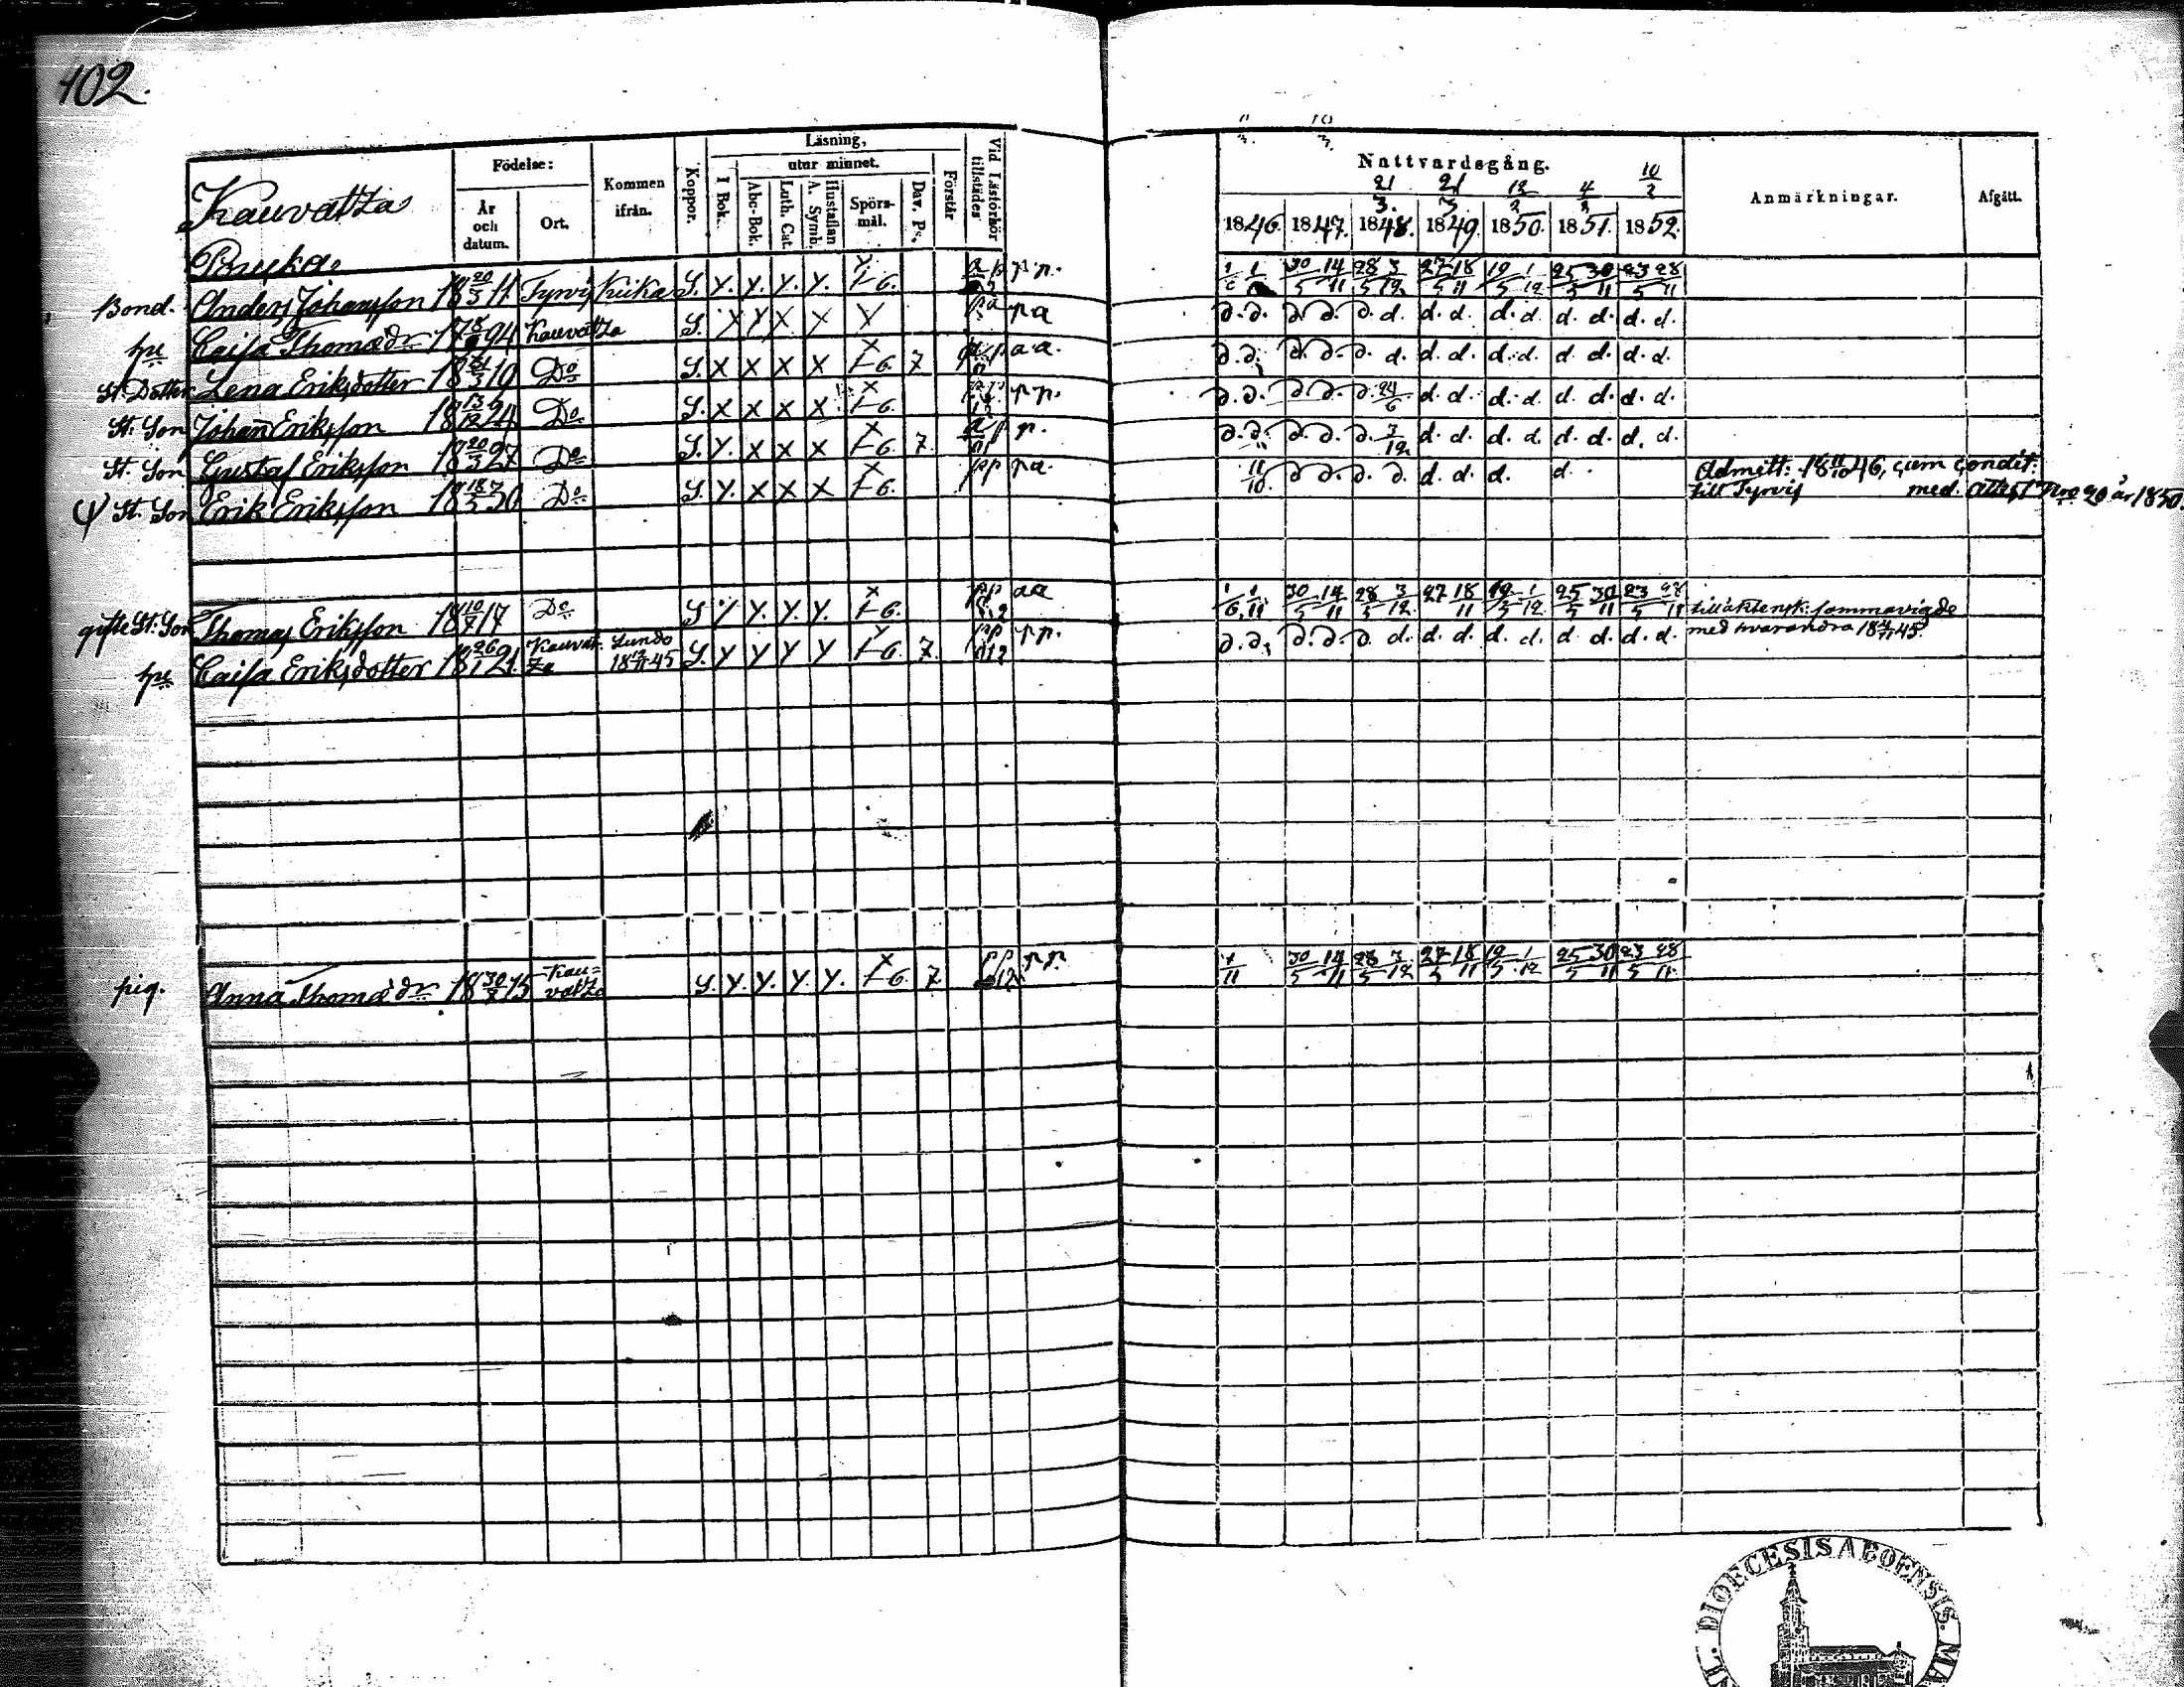 102.
Kauvatza
Födelse:
År och datum.
Ort.
Kommen ifrån.
Koppor.
Läsning,
utur minnet.
I Bok.
Abc-Bok.
Luth. Cat.
Hustaflan A. Symb.
Spörsmål.
Dav. Ps.
Förstår
Vid Läsförhör tillstädes
Nattvardsgång.
21/3. 21/3. 12/2 4/3 10/2
1846. 1847. 1848. 1849. 1850. 1851. 1852.
Anmärkningar.
Afgått.
Bond. Anders Johansson 18 20/3 11. Tyrvis S. y. y. y. y. 1-6. p.p. 30/5 14/11 28/5 3/12 27/5 18/11 19/5 1/12 25/5 30/11 23/5 28/11
hu Caisa Thomædr 94 Kauvatza S. x y x x y p a d. d. d. d. d. d. d. d. d. d. d. d. d. d.
St. Dotter Lena Eriksdotter 19 Do S. x x x x x 1-6. 7 a a. d. d. d. d. d. d. d. d. d. d. d. d. d. d.
St. Son Johan Eriksson 18 13/12 24 Do S. x x x x x 1-6. p.p. d. d. d. d. d. 24/6 d. d. d. d. d. d. d. d.
St. Son Gustaf Eriksson 18 20/3 27 Do S. y. x x x x 1-6 7. p. d. d. d. d. d. 3/12 d. d. d. d. d. d. d. d.
St. Son Erik Eriksson 18 18/3 30 Do S. y. x x x x 1-6. pp p a. 11/10. d d. d. d. d. d. d. d. Admitt: 18 11/10 46, cum condit:
till Tyrvis med. attest Nro 20 år 1850.
gifte St. Son Thomas Eriksson 18 10/7 17 Do S y y. y. y. x 1-6. pp a a 30/5 14/11 28/5 3/12 27 18/11 19/5 1/12 25/5 30/11 23/5 28/11 till äktensk: sammanvigde
med hvarandra 45.
hu Caisa Eriksdotter 18 26/1 21. Kauvatza Lundo 45 S. y y y y y 1-6 7. pp p.p. d. d. d. d. d. d. d. d. d. d. d. d. d. d.
pig. Anna Thomædr 18 30/7 15 Kauvatza S. y. y. y. y. x 1-6. 7. p.p. 1/11 30/5 14/11 28/5 3/12 27/5 18/11 19/5 1/12 25/5 30/11 23/5 28/11
DIOECESIS ABOENSIS.